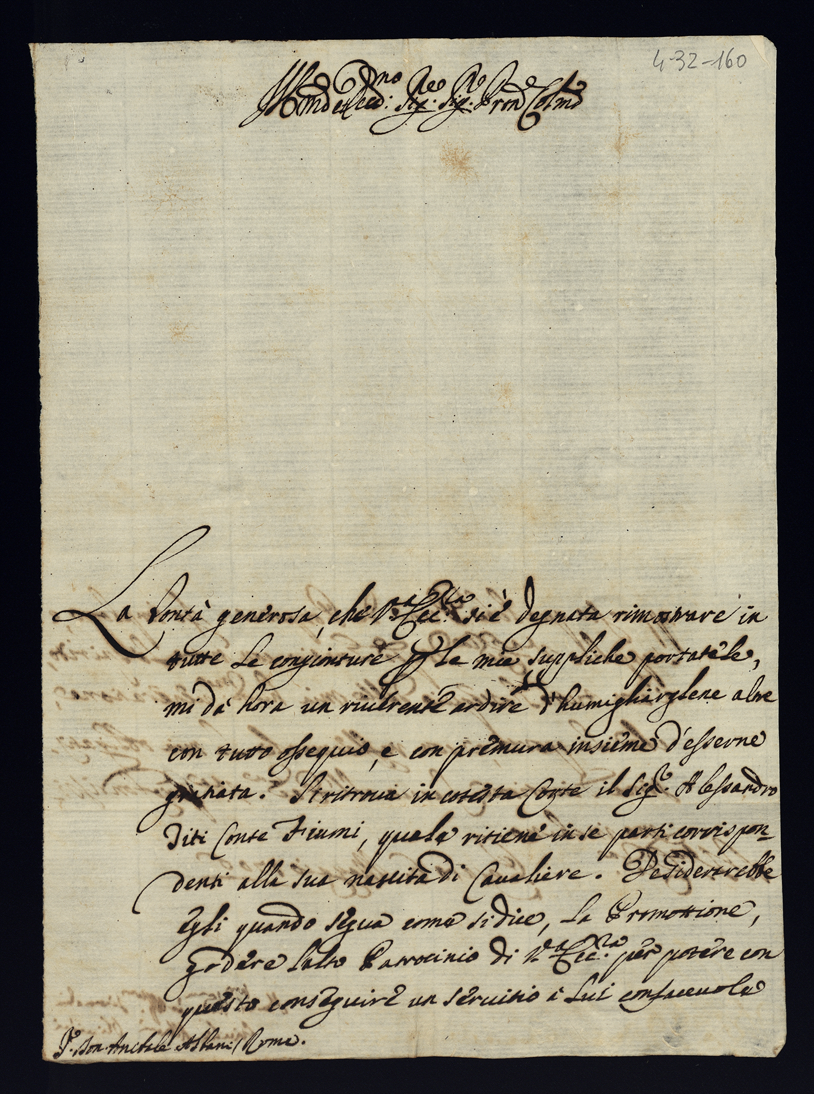 4-32-160
Illmo et Ecc: Sig: Sig: Pron Colmo
La bontà generosa, che V.ª Ecc.za si è degnata rimostrare in
tutte le congionture per le mie suppliche portatele,
mi dà hora un riverente ardire d'humigliargliene altre
con tutto ossequio, e con premura insieme d'esserne
gratiata. Si ritrova in cotesta Corte il Sig.re Alessandro
Titi Conte Fiumi, quale ritiene in se parti corrispon-
denti alla sua nascita di Cavaliere. Desidererebbe
egli quando segua come si dice, la Promottione,
godere l'alto Patrocinio di V.ª Ecc.za per potere con
questo conseguire un servitio à lui confacevole
S.r Don Anibale Albani / Roma.